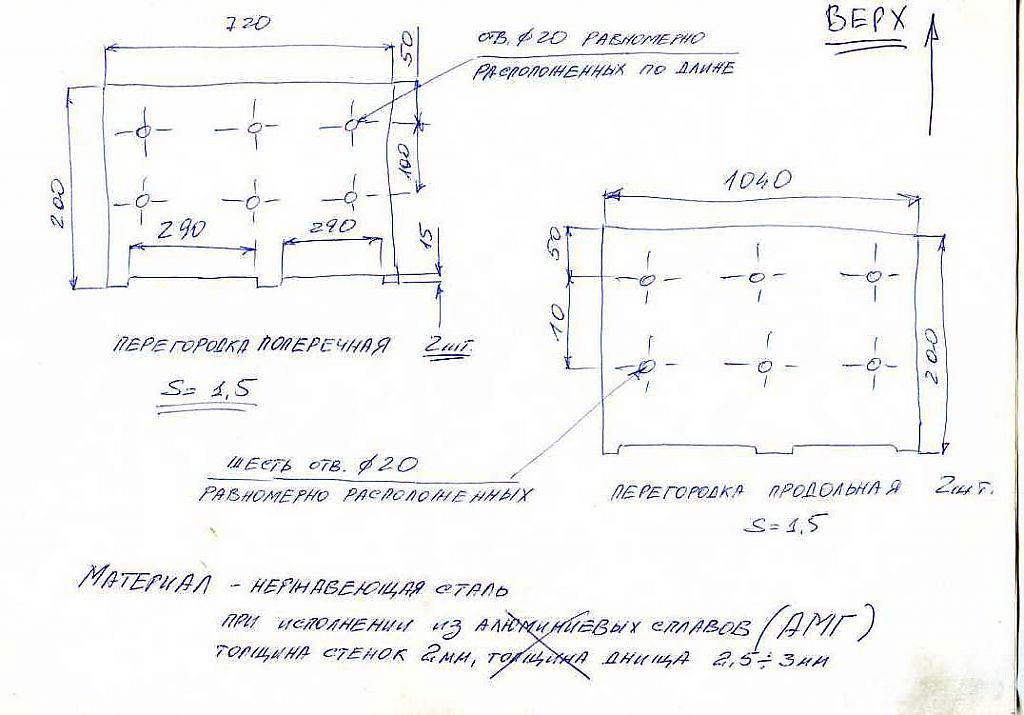 720
50
отв. ϕ20 РАВНОМЕРНО
РАСПОЛОЖЕННЫХ ПО ДЛИНЕ
ВЕРХ
200
100
290
290
15
ПЕРЕГОРОДКА ПОПЕРЕЧНАЯ 2шт.
S= 1,5
1040
50
10
200
ШЕСТЬ отв. ϕ20
РАВНОМЕРНО РАСПОЛОЖЕННЫХ
ПЕРЕГОРОДКА ПРОДОЛЬНАЯ 2шт.
S=1,5
МАТЕРИАЛ - НЕРЖАВЕЮЩАЯ СТАЛЬ
ПРИ ИСПОЛНЕНИИ ИЗ АЛЮМИНИЕВЫХ СПЛАВОВ (АМГ)
ТОРЩИНА СТЕНОК 2мм, ТОРЩИНА ДНИЩА 2,5÷3мм